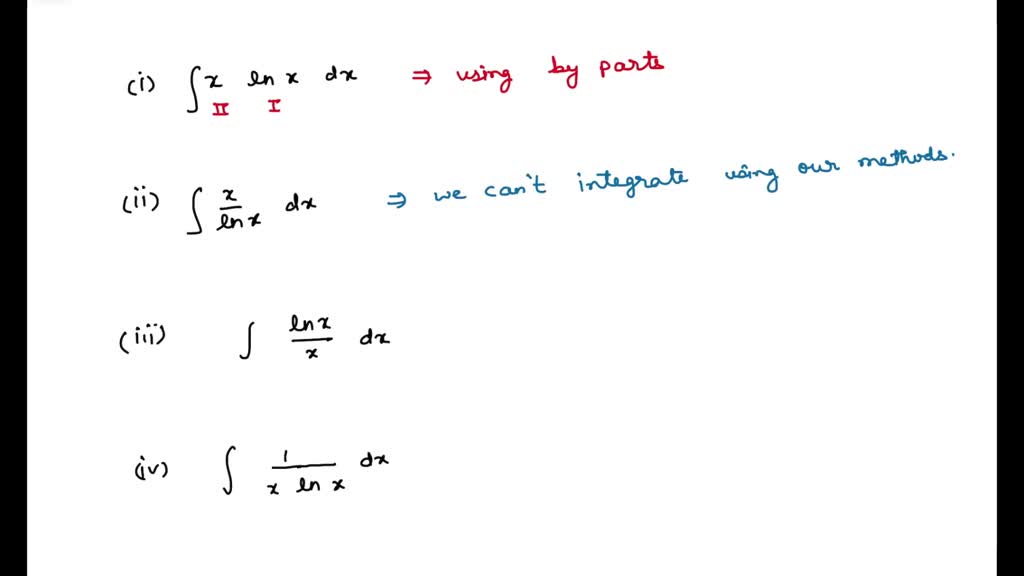 (i) ∫ x ln x dx ⇒ using by parts
II I
(ii) ∫ x/ln x dx ⇒ we can't integrate using our methods.
(iii) ∫ ln x/x dx
(iv) ∫ 1/x ln x dx